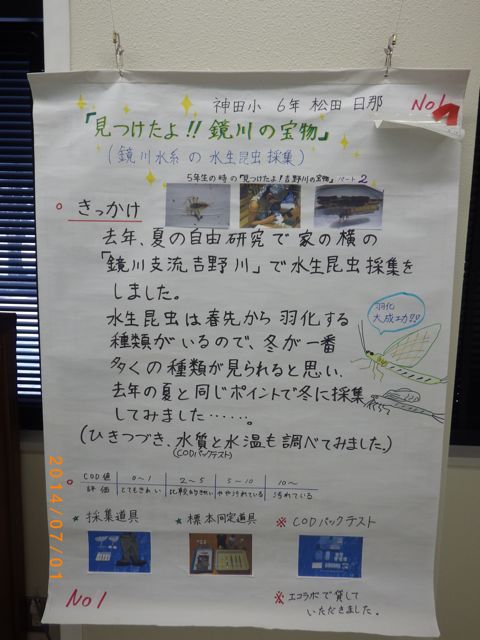 神田小 6年 松田 日那
No1
「見つけたよ!! 鏡川の宝物」
(鏡川水系の水生昆虫採集)
5年生の時の「見つけたよ!吉野川の宝物」パート2
○ きっかけ
去年、夏の自由研究で家の横の
「鏡川支流吉野川」で水生昆虫採集を
しました。
水生昆虫は春先から羽化する
種類がいるので、冬が一番
多くの種類が見られると思い、
去年の夏と同じポイントで冬に採集
してみました……。
(ひきつづき、水質と水温も調べてみました。)
(CODパックテスト)
羽化
大成功!!
○ COD値 0~1 2~5 5~10 10~
評価 とてもきれい 比較的きれい やや汚れている 汚れている
★ 採集道具 ★ 標本同定道具 ※ CODパックテスト
※ エコラボで貸して
いただきました。
No1
2014/07/01